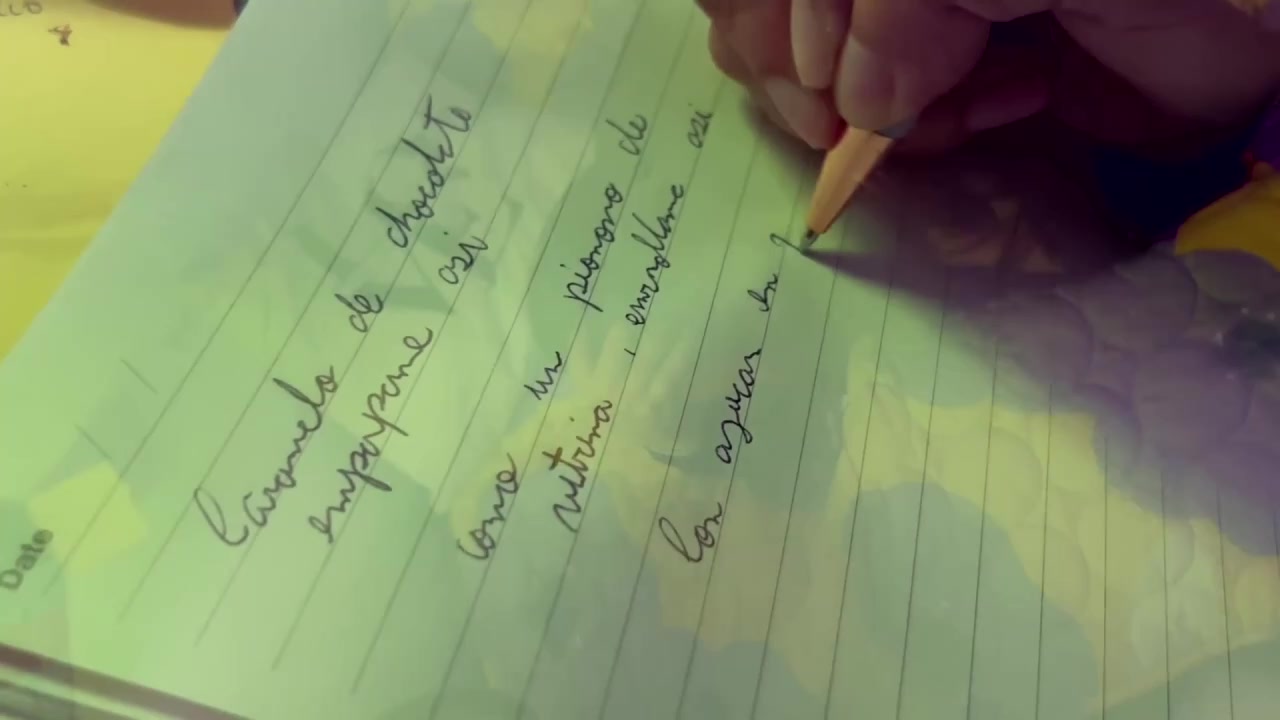 Date
Caramelo de chocolate
empapame asi
como un pionono de
vitrina, enrollame asi
Con azucar en